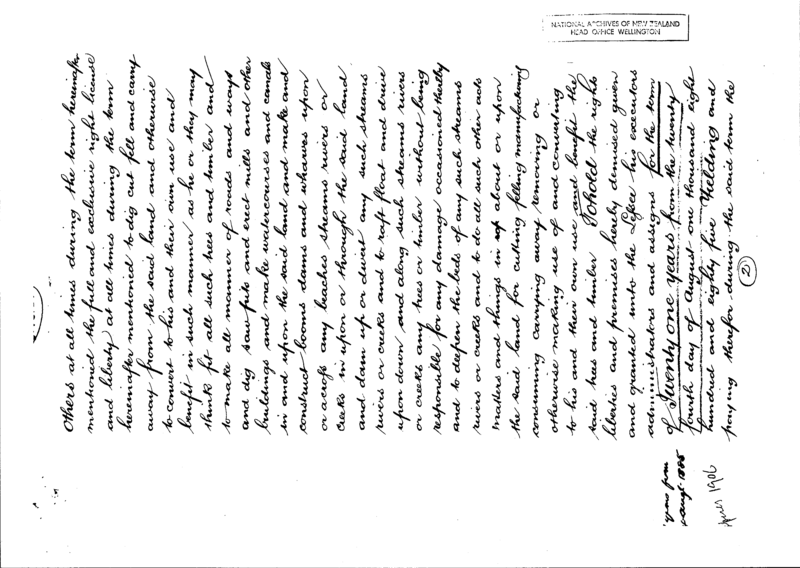 NATIONAL ARCHIVES OF NEW ZEALAND
HEAD OFFICE WELLINGTON
Others at all times during the term hereinafter
mentioned the full and exclusive right license
and liberty at all times during the term
hereinafter mentioned to dig cut fell and carry
away from the said land and otherwise
to convert to his and their own use and
benefit in such manner as he or they may
think fit all such trees and timber and
to make all manner of roads and ways
and dig saw pits and erect mills and other
buildings and make watercourses and canals
in and upon the said land and make and
construct booms dams and wharves upon
or across any beaches streams rivers or
creeks in upon or through the said land
and dam up or divert any such streams
rivers or creeks and to raft float and drive
upon down and along such streams rivers
or creeks any trees or timber without being
responsible for any damage occasioned thereby
and to deepen the beds of any such streams
rivers or creeks and to do all such other acts
matters and things in about or upon
the said land for cutting felling manufacturing
consuming carrying away removing or
otherwise making use of and converting
to his and their own use and benefit the
said trees and timber To hold the rights
liberties and premises hereby demised given
and granted unto the Lessee his executors
administrators and assigns for the term
of Twenty one years from the twenty
fourth day of August one thousand eight
hundred and eighty five Yielding and
paying therefor during the said term the
(2)
years from
1885
1906